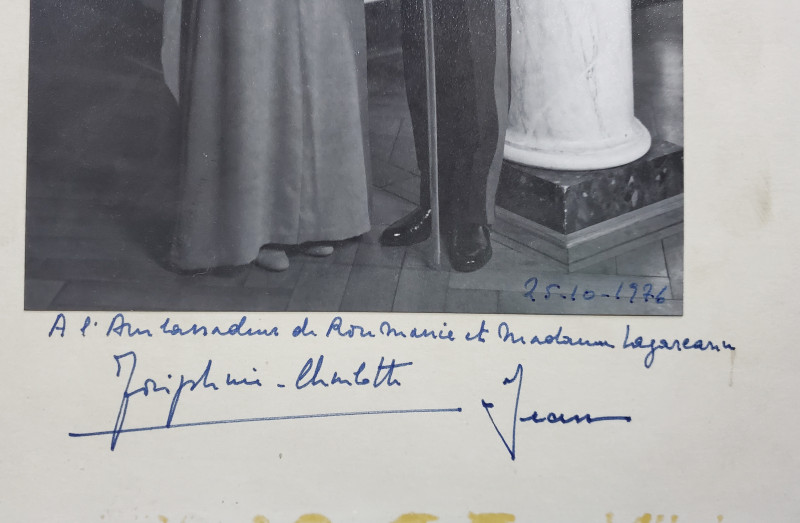 25-10-1976
A l'Ambassadeur de Roumanie et Madame Lazareanu
Joséphine-Charlotte Jean